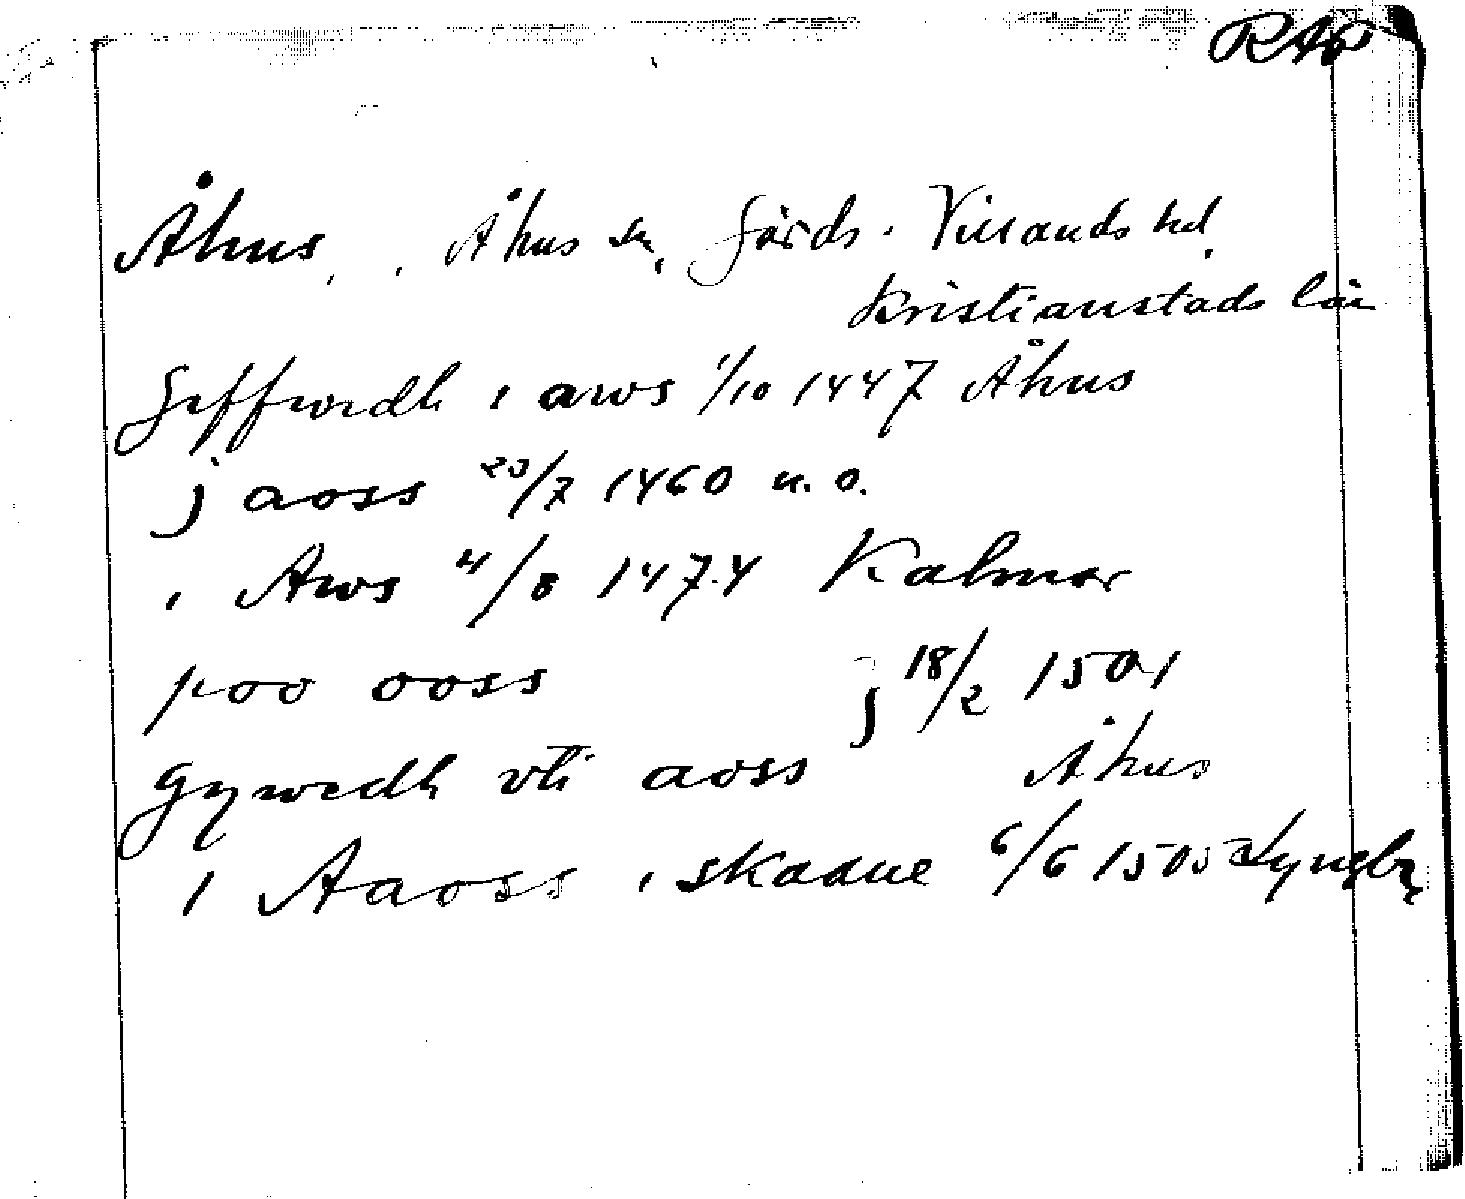 RAp
Åhus, Åhus sn, Gärds. Villands hd,
Kristianstads län
Geffwedh i aws 1/10 1447 Åhus
j aoss 23/7 1460 u. o.
i Aws 4/8 1474 Kalmar
poo ooss j 18/2 1501
Gywedh vti aoss Åhus
i Aaoss i skaane 6/6 1505 Lyngby